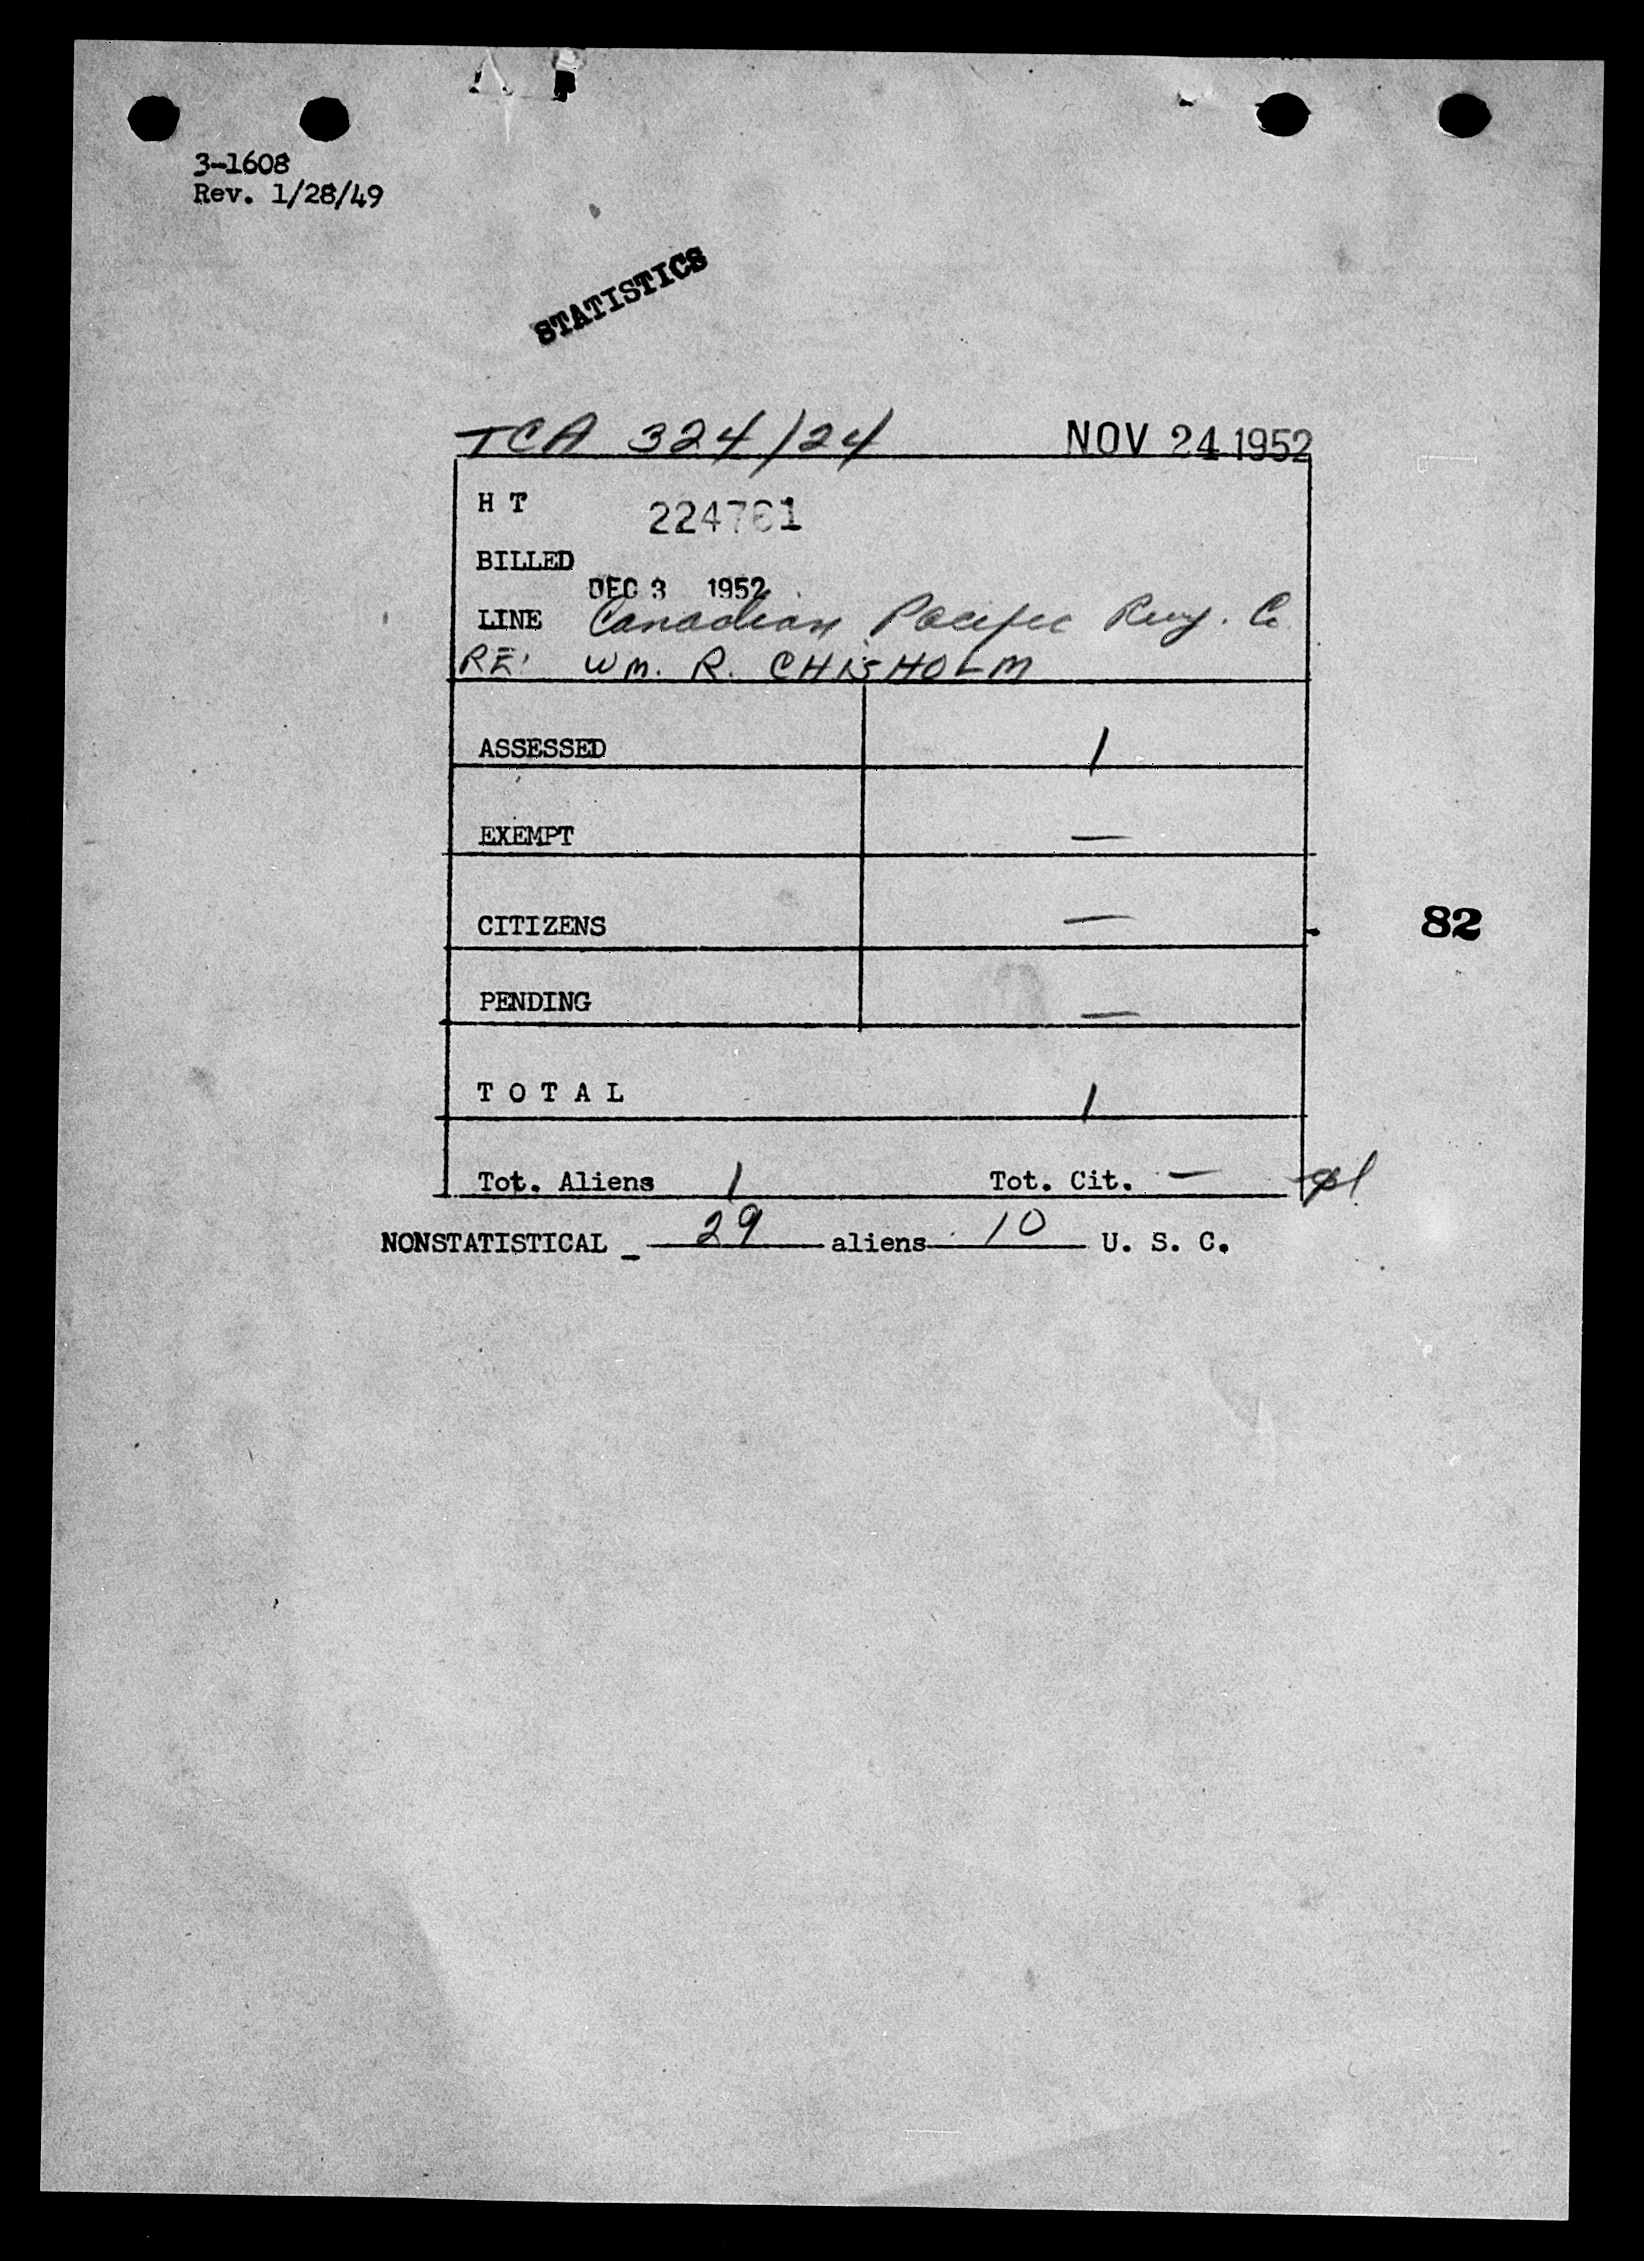 3-1608
Rev. 1/28/49
STATISTICS
TCA 324/24 NOV 24 1952
H T 224781
BILLED
DEC 3 1952
LINE Canadian Pacific Rwy. Co
RE: WM. R. CHISHOLM
ASSESSED 1
EXEMPT —
CITIZENS —
82
PENDING —
T O T A L 1
Tot. Aliens 1 Tot. Cit. —
NONSTATISTICAL _ 29 aliens 10 U. S. C.